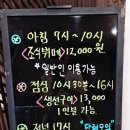 아침 7시~10시
<조식뷔페>12,000원
*일반인 이용가능
점심 10시30분~16시
<생선구이>13,000
1인분 가능
저녁 17시